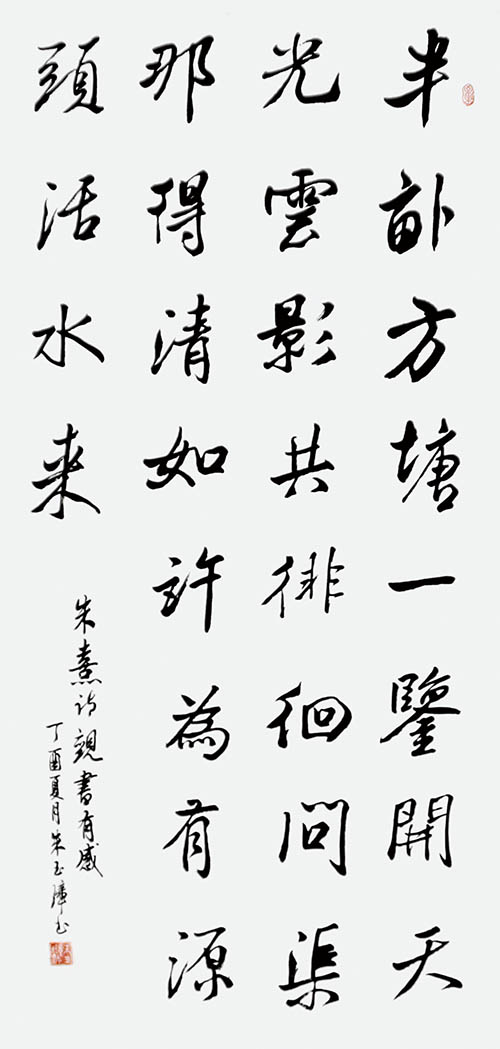 半畝方塘一鑒開天
光雲影共徘徊問渠
那得清如許為有源
頭活水来
朱熹詩觀書有感
丁酉夏月朱玉璋书